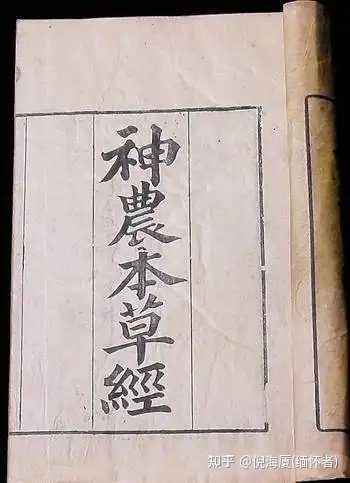 神農本草經
知乎 @倪海厦(缅怀者)